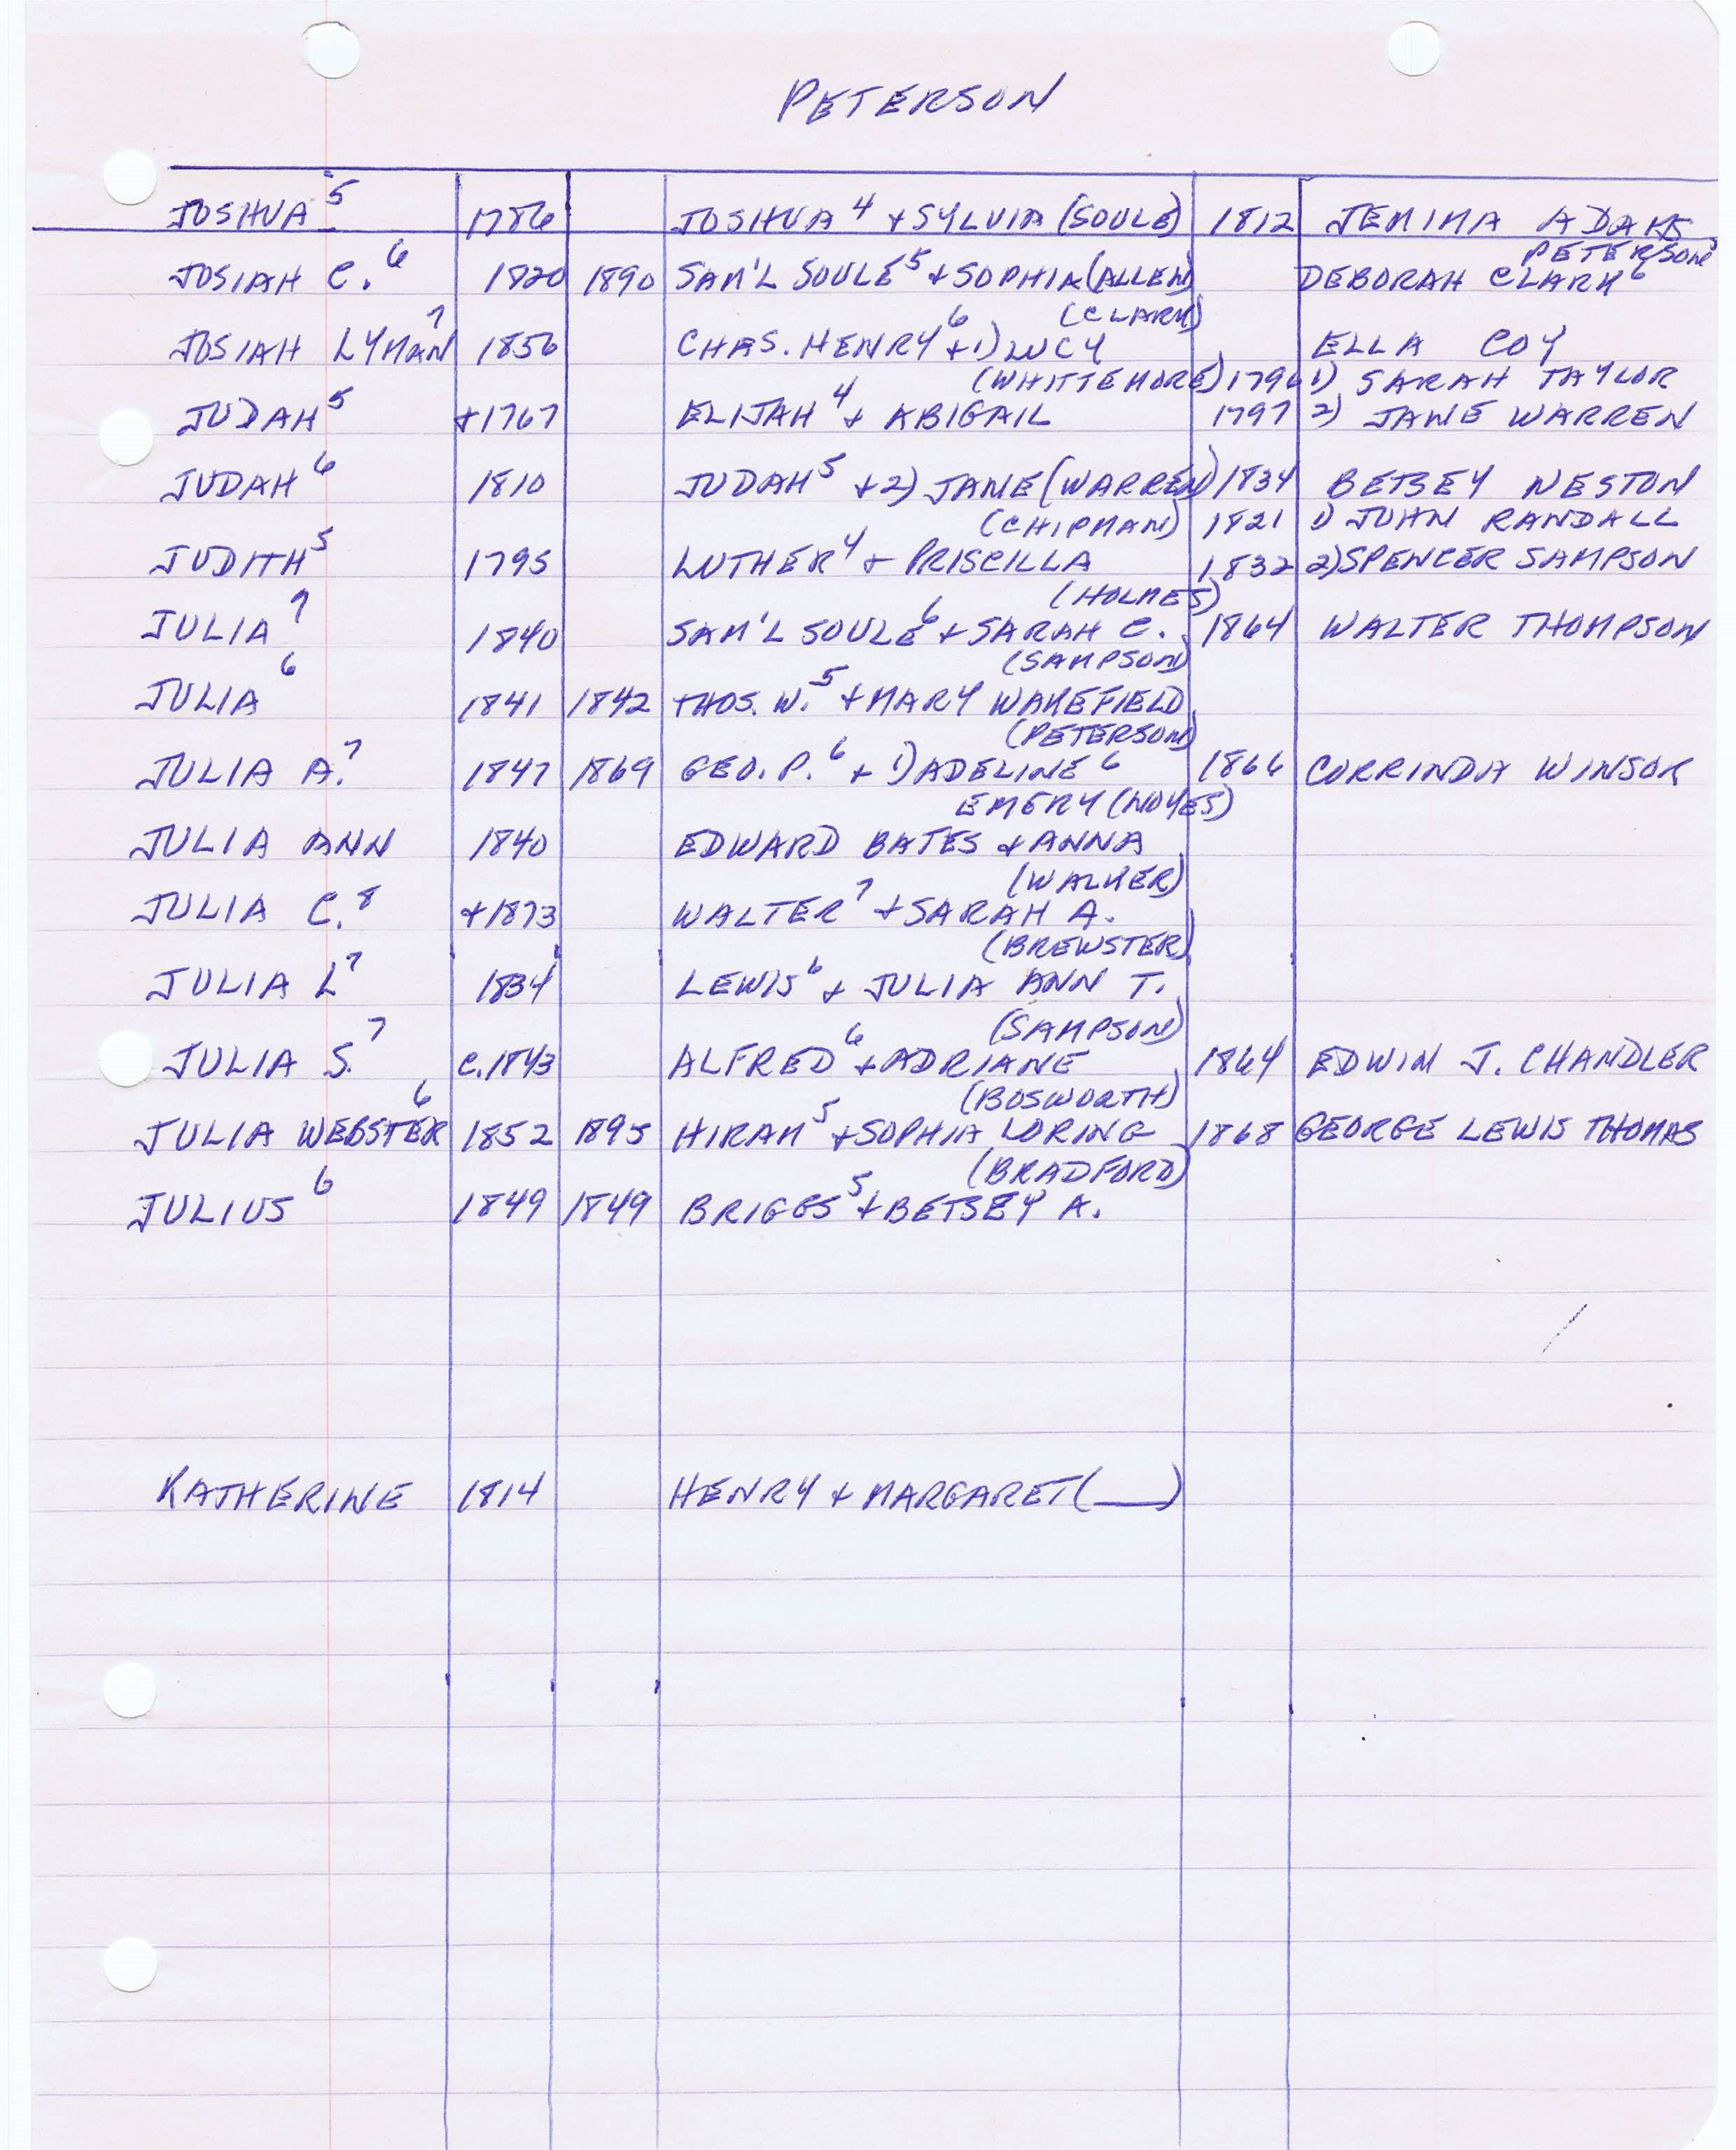 PETERSON
JOSHUA 5 1786 JOSHUA 4 + SYLVIA (SOULE) 1812 JEMIMA ADAMS
PETERSON
JOSIAH C. 6 1820 1890 SAM'L SOULE 5 + SOPHIA (ALLEN) DEBORAH CLARK 6
(CLARK)
JOSIAH LYMAN 7 1856 CHAS. HENRY 6 + 1) LUCY ELLA COY
(WHITTEMORE) 179 1) SARAH TAYLOR
JUDAH 5 +1767 ELIJAH 4 + ABIGAIL 1797 2) JANE WARREN
JUDAH 6 1810 JUDAH 5 + 2) JANE (WARREN) 1834 BETSEY WESTON
(CHIPMAN) 1821 1) JOHN RANDALL
JUDITH 5 1795 LUTHER 4 + PRISCILLA 1832 2) SPENCER SAMPSON
(HOLMES)
JULIA 7 1840 SAM'L SOULE 6 + SARAH C. 1864 WALTER THOMPSON
(SAMPSON)
JULIA 6 1841 1842 THOS. W. 5 + MARY WAKEFIELD
(PETERSON)
JULIA A. 7 1847 1869 GEO. P. 6 + 1) ADELINE 6 1866 CORRINDA WINSOR
EMERY (NOYES)
JULIA ANN 1840 EDWARD BATES + ANNA
(WALKER)
JULIA C. 8 +1873 WALTER 7 + SARAH A.
(BREWSTER)
JULIA L 7 1834 LEWIS 6 + JULIA ANN T.
(SAMPSON)
JULIA S. 7 C. 1843 ALFRED 6 + ADRIANE 1864 EDWIN J. CHANDLER
(BOSWORTH)
JULIA WEBSTER 6 1852 1895 HIRAM 5 + SOPHIA LORING 1868 GEORGE LEWIS THOMAS
(BRADFORD)
JULIUS 6 1849 1849 BRIGGS 5 + BETSEY A.
KATHERINE 1814 HENRY + MARGARET (___)